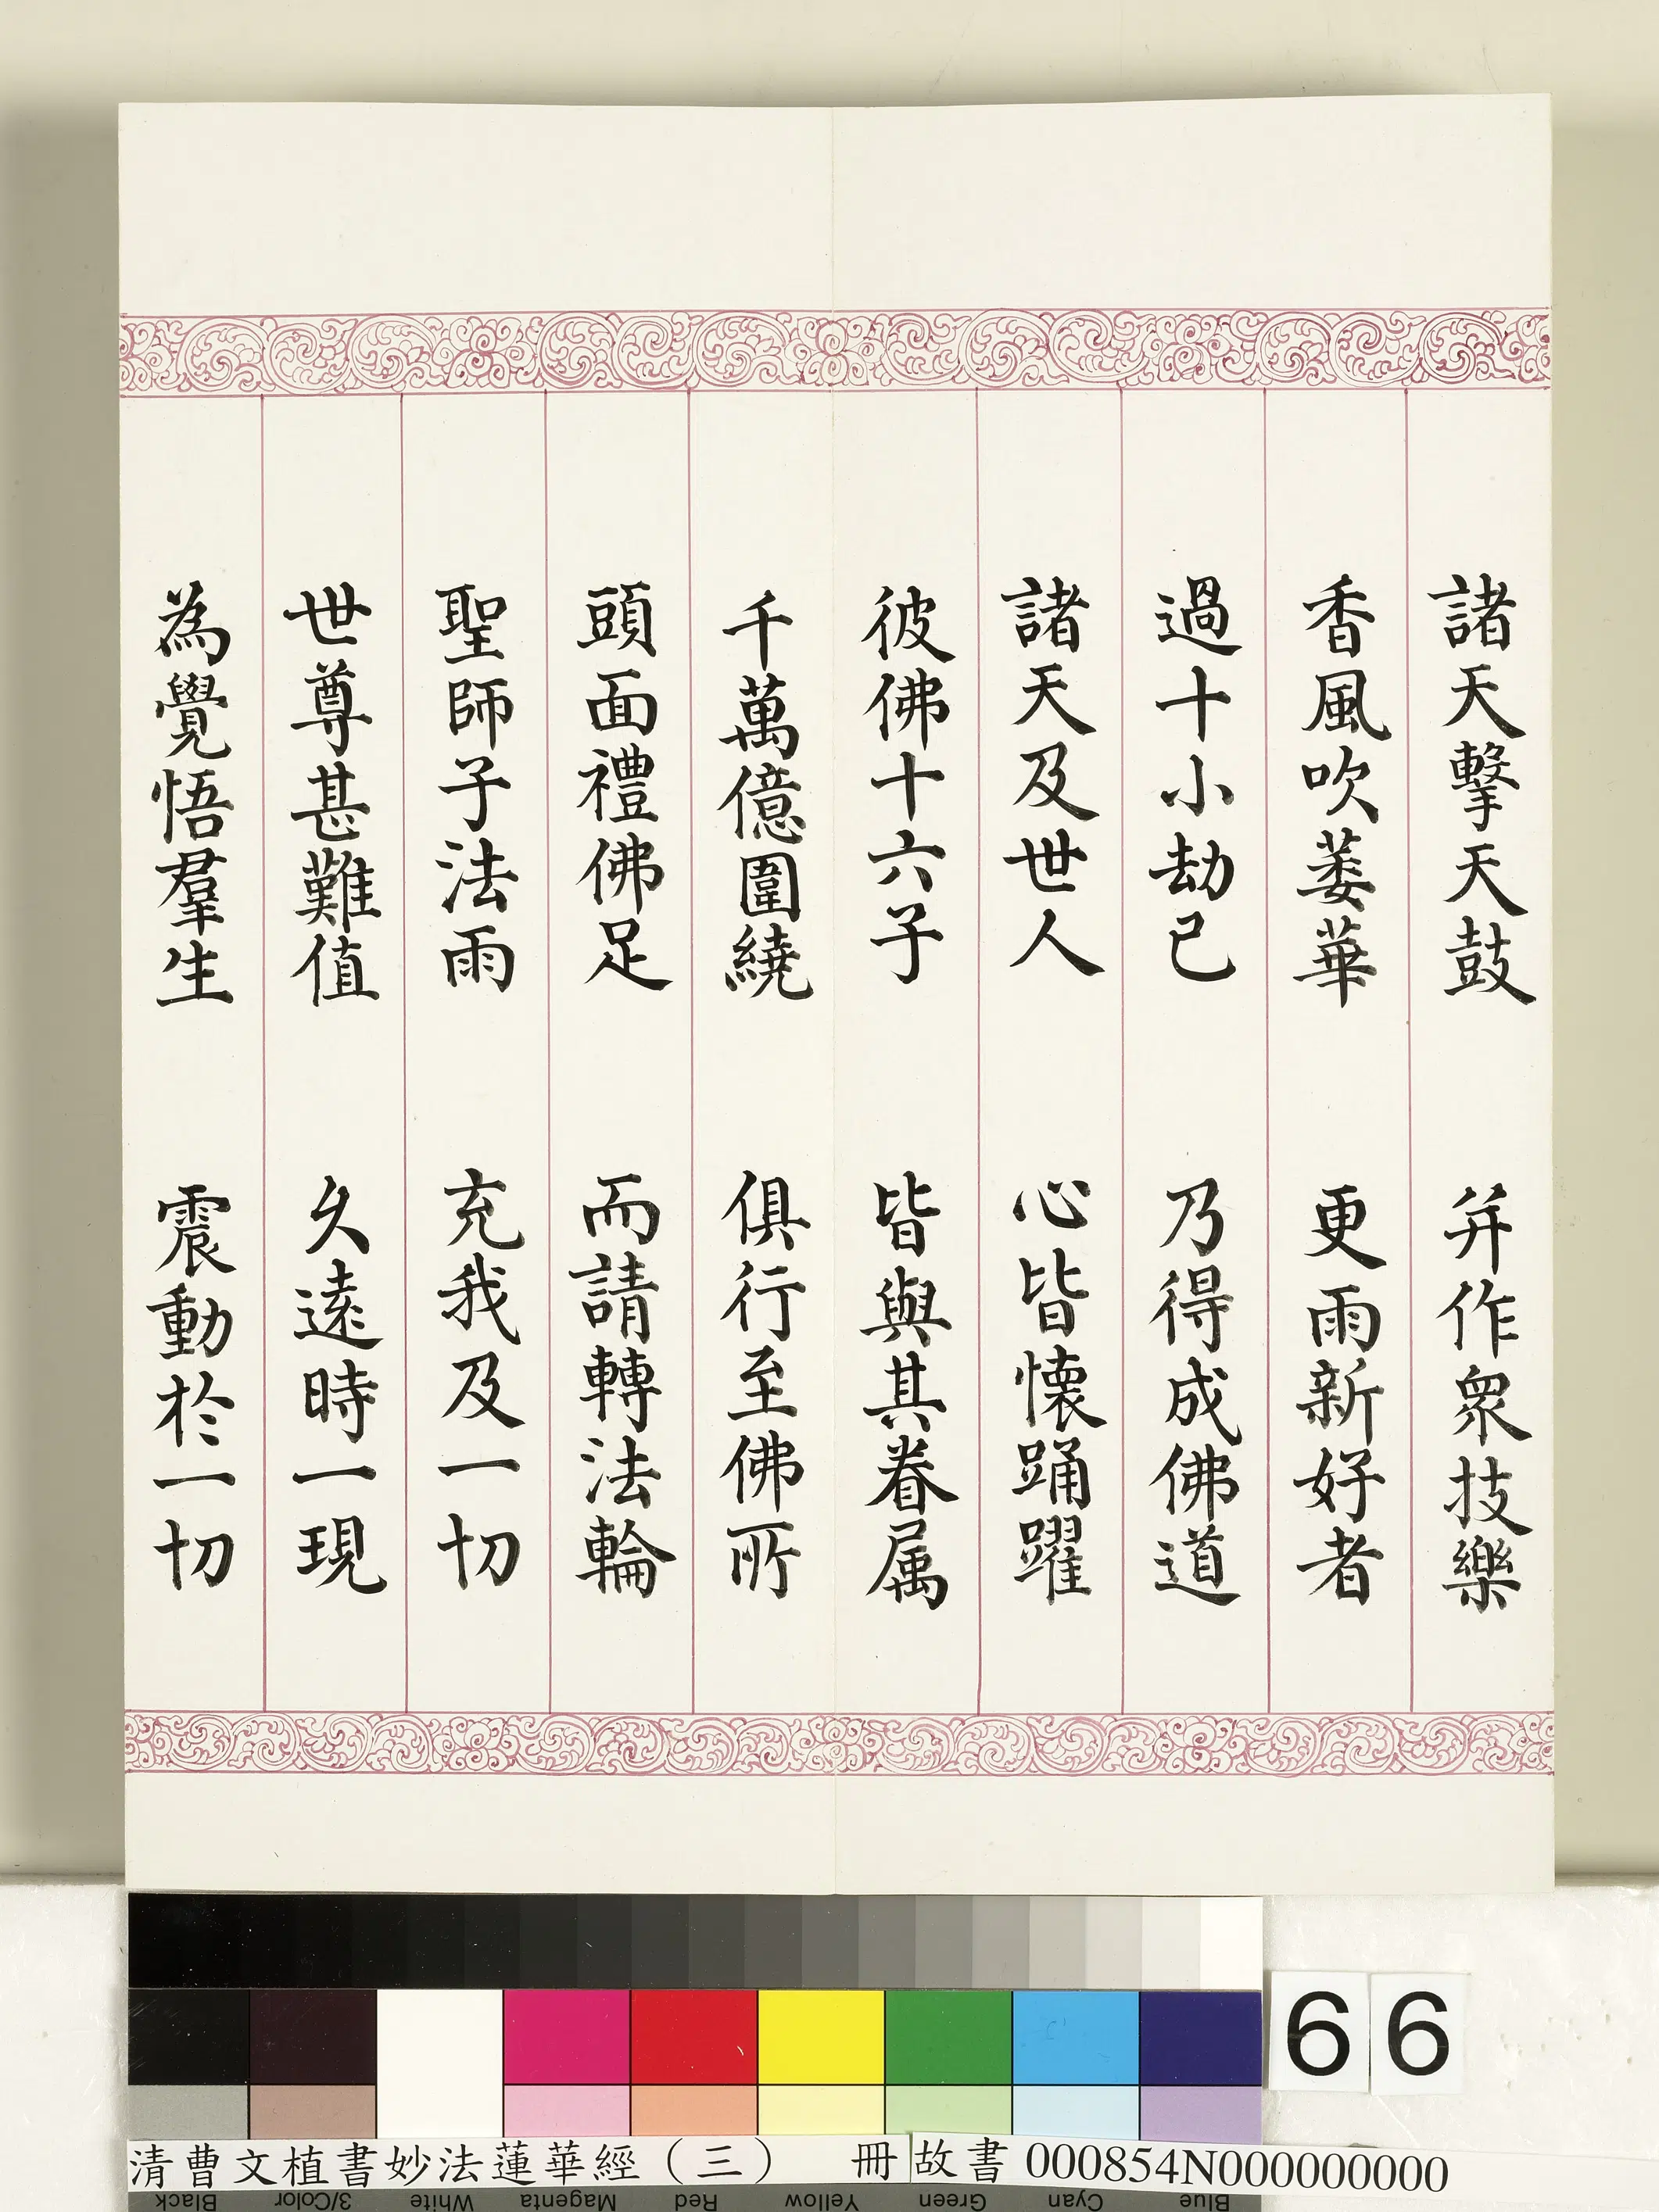 諸天擊天鼓　并作眾技樂
香風吹萎華　更雨新好者
過十小劫已　乃得成佛道
諸天及世人　心皆懷踊躍
彼佛十六子　皆與其眷属
千萬億圍繞　俱行至佛所
頭面禮佛足　而請轉法輪
聖師子法雨　充我及一切
世尊甚難值　久遠時一現
為覺悟羣生　震動於一切
66
清曹文植書妙法蓮華經（三）　冊 故書 000854N000000000
Black 3/Color White Magenta Red Yellow Green Cyan Blue